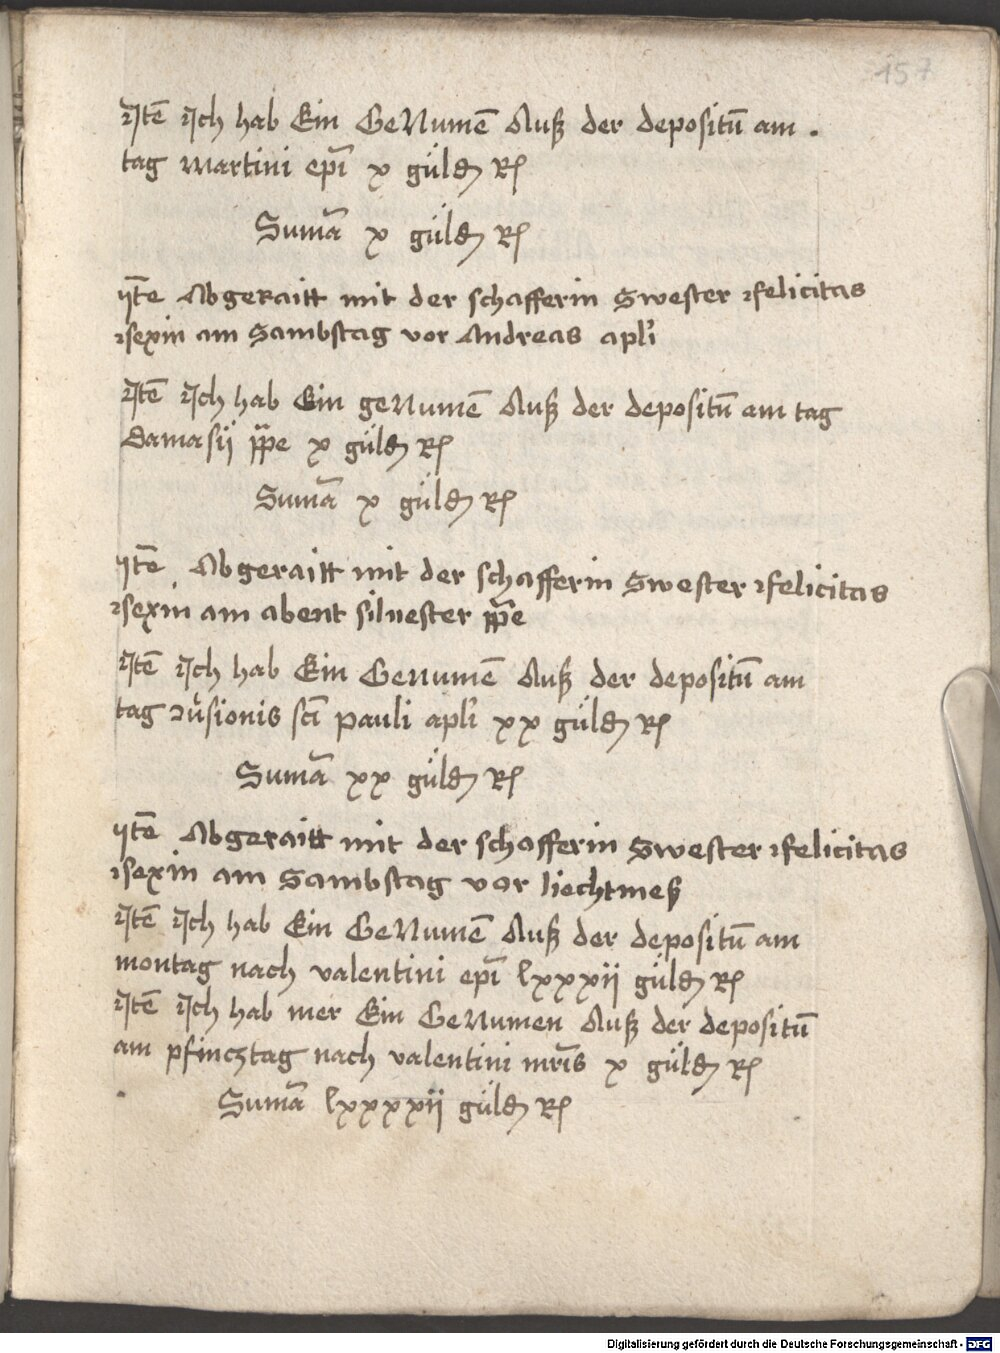 157
Itē Ich hab Ein GeNumē Auß der depositū am .
tag martini ep̄i x güldn̄ Rſ
Sumā x güldn̄ Rſ
ytē Abgeraitt mit der schafferin Swester felicitas
sexin am Sambstag vor Andreas apłi
Itē Ich hab Ein geNumē Auß der depositū am tag
damasij p̄pe x güldn̄ Rſ
Sumā x güldn̄ Rſ
ytē Abgeraitt mit der schafferin Swester felicitas
sexin am abent siluester p̄pe
Itē Ich hab Ein Genumē Auß der depositū am
tag ꝯu̓sionis sc̄i pauli apłi xx güldn̄ Rſ
Sumā xx güldn̄ Rſ
ytē Abgeraitt mit der schafferin Swester felicitas
sexin am Sambstag vor liechtmeß
Itē Ich hab Ein GeNumē Auß der depositū am
montag nach valentini ep̄i lxxxij güldn̄ Rſ
Itē Ich hab mer Ein GeNumen Auß der depositū
am pfincztag nach valentini mr̄is x güldn̄ Rſ
Sumā lxxxxij güldn̄ Rſ
Digitalisierung gefördert durch die Deutsche Forschungsgemeinschaft - DFG